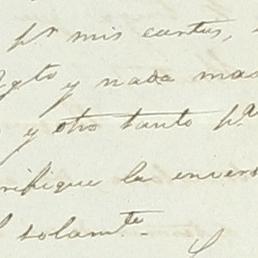 pr mis cartas,
Agto y nada mas
y otro tanto pa
rifique la invers
solamte.